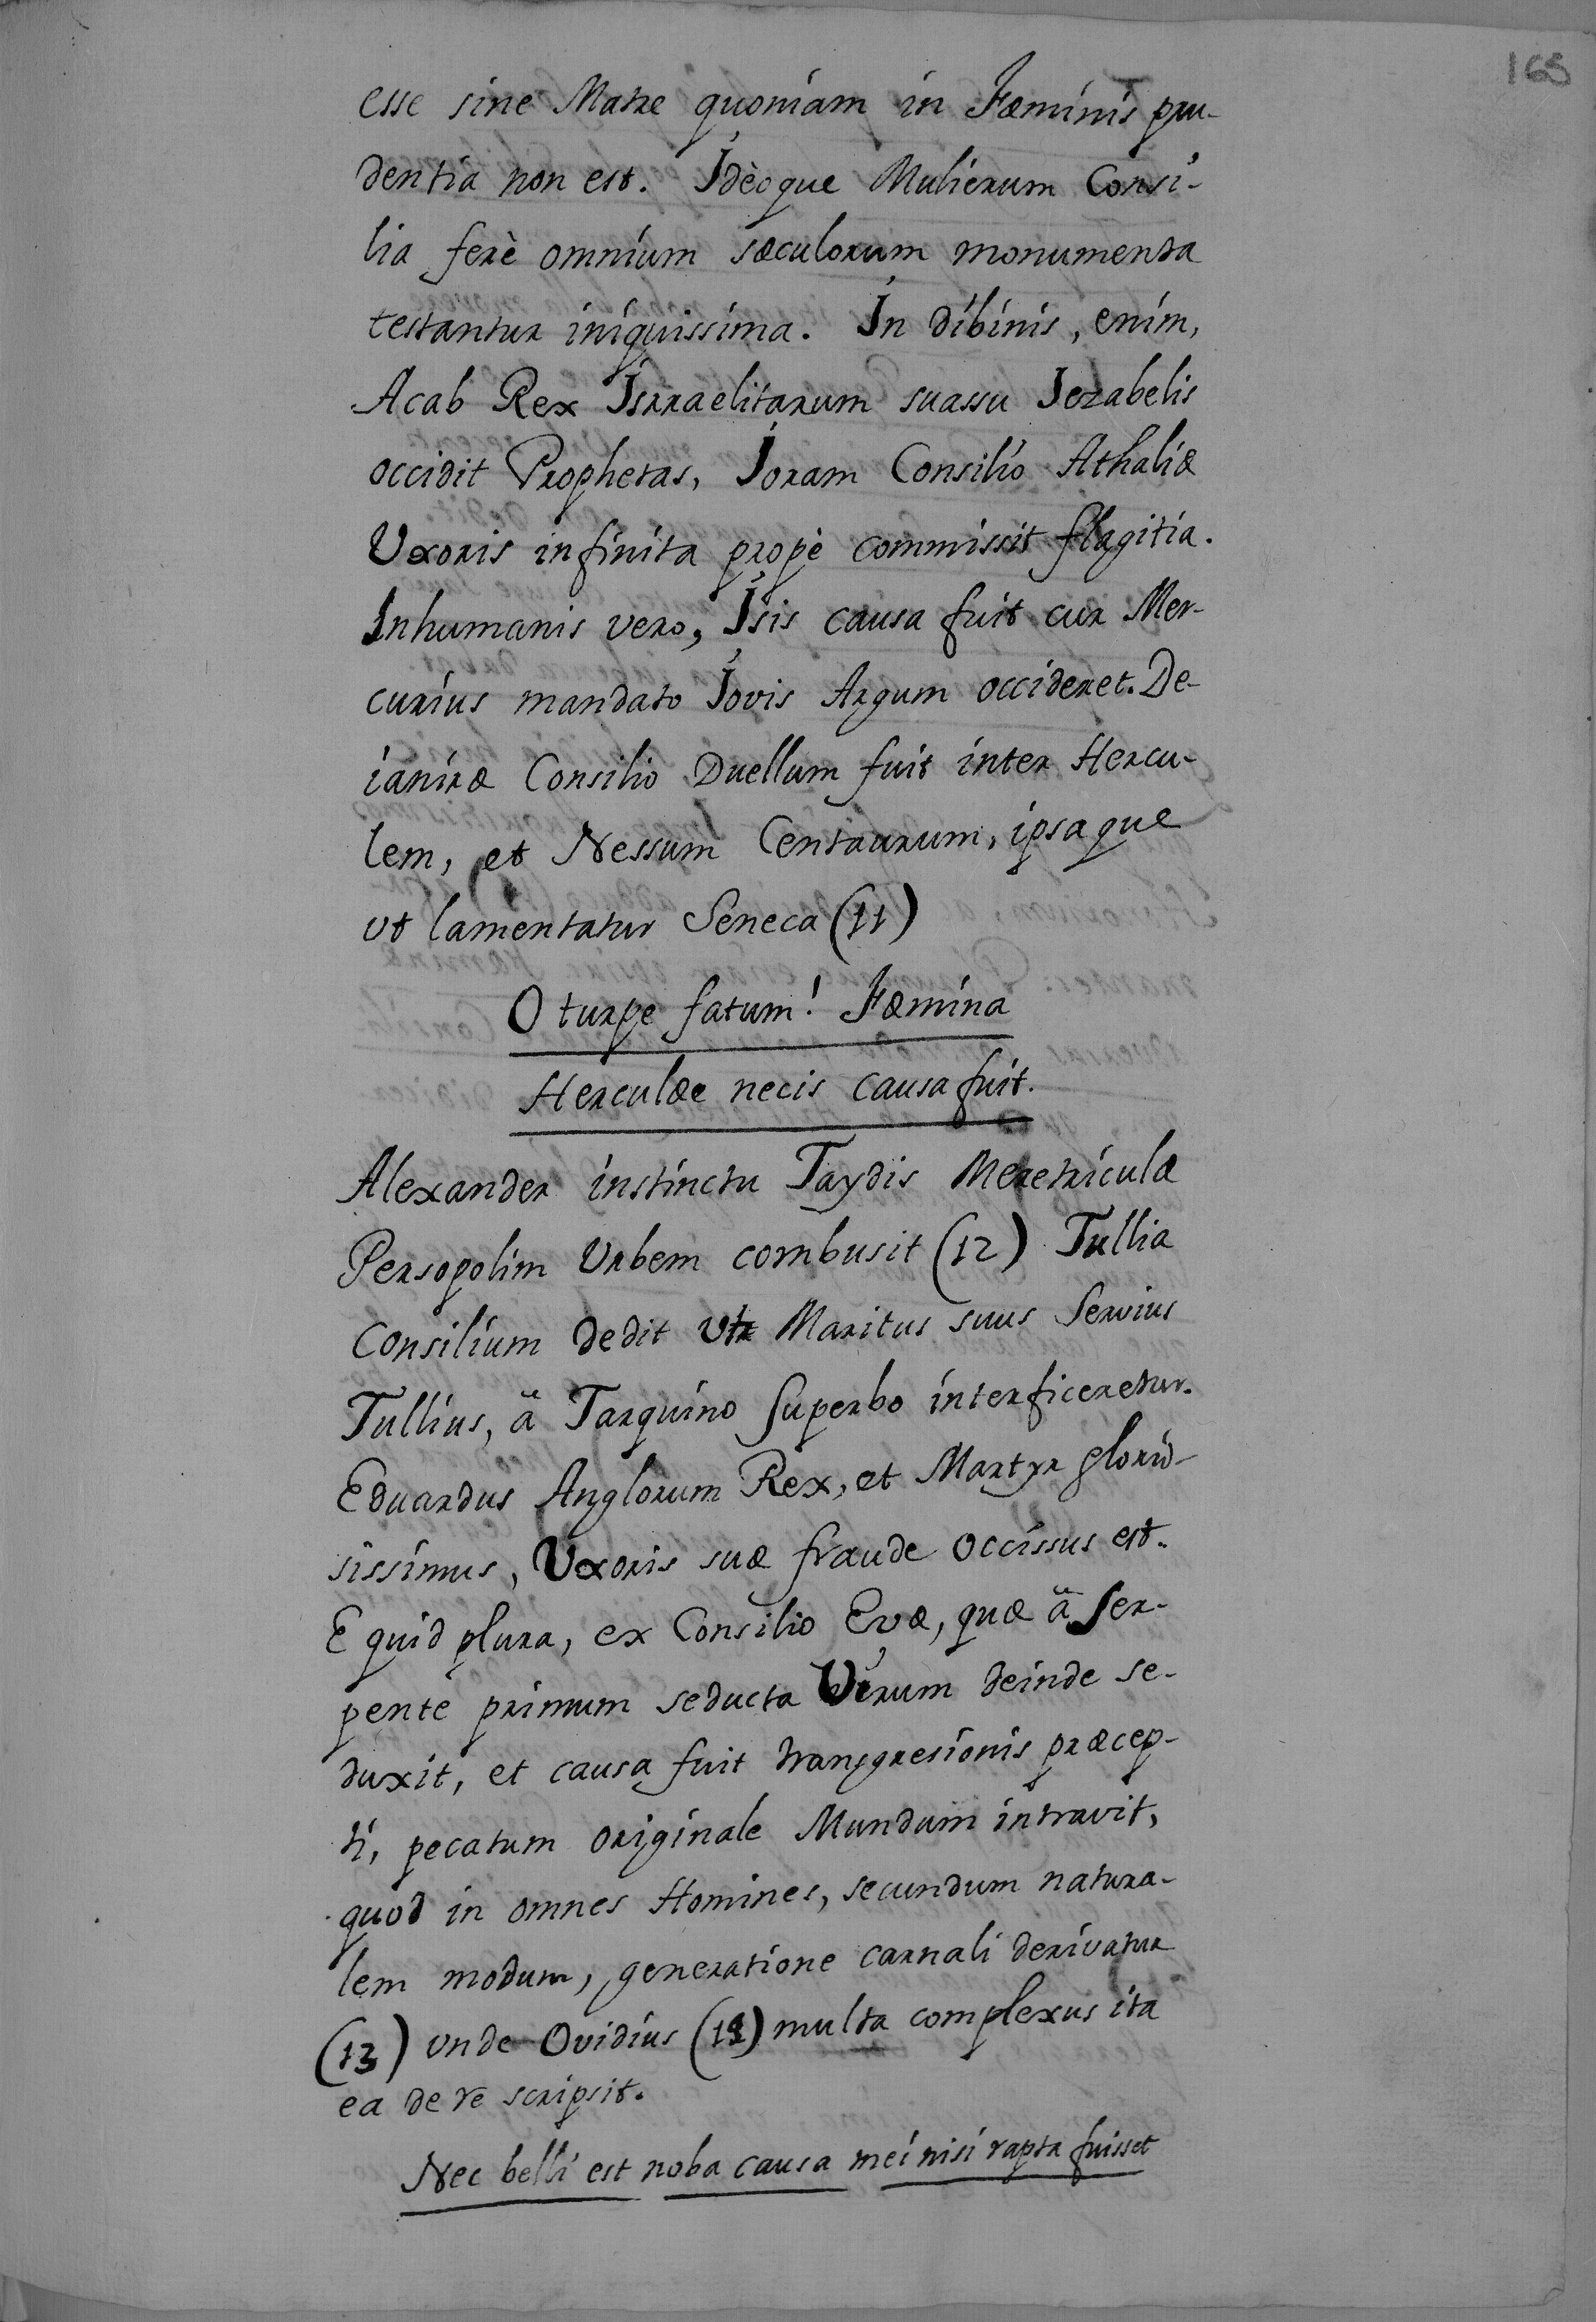 165
esse sine Matre quoniam in Fæminis pru-
dentia non est. Idèoque Mulierum Consi-
lia ferè omnium sæculorum monumenta
testantur iniquissima. In dibinis, enim,
Acab Rex Isrraelitarum suassu Jezabelis
occidit Prophetas, Joram Consilio Athaliæ
Uxoris infinita propè commissit flagitia.
Inhumanis vero, Isis causa fuit cur Mer-
curius mandato Jovis Argum occideret. De-
ianiræ Consilio Duellum fuit inter Hercu-
lem, et Nessum Centaurum, ipsaque
ut lamentatur Seneca (11)
O turpe fatum! Fæmina
Herculæe necis causa fuit.
Alexander instinctu Taydis Meretriculæ
Persopolim Urbem combusit (12) Tullia
Consilium dedit ut Maritus suus Servius
Tullius, ä Tarquino Superbo interficeretur.
Eduardus Anglorum Rex, et Martyr glorio-
sissimus, Uxoris suæ fraude occissus est.
E quid plura, ex Consilio Evæ, quæ ä Ser-
pente primum seducta Virum deinde se-
duxit, et causa fuit transgresionis præcep-
ti, pecatum originale Mundum intravit,
quod in omnes Homines, secundum natura-
lem modum, generatione carnali derivatur
(13) unde Ovidius (14) multa complexus ita
ea de re scripsit.
Nec belli est noba causa mei nisi rapta fuisset